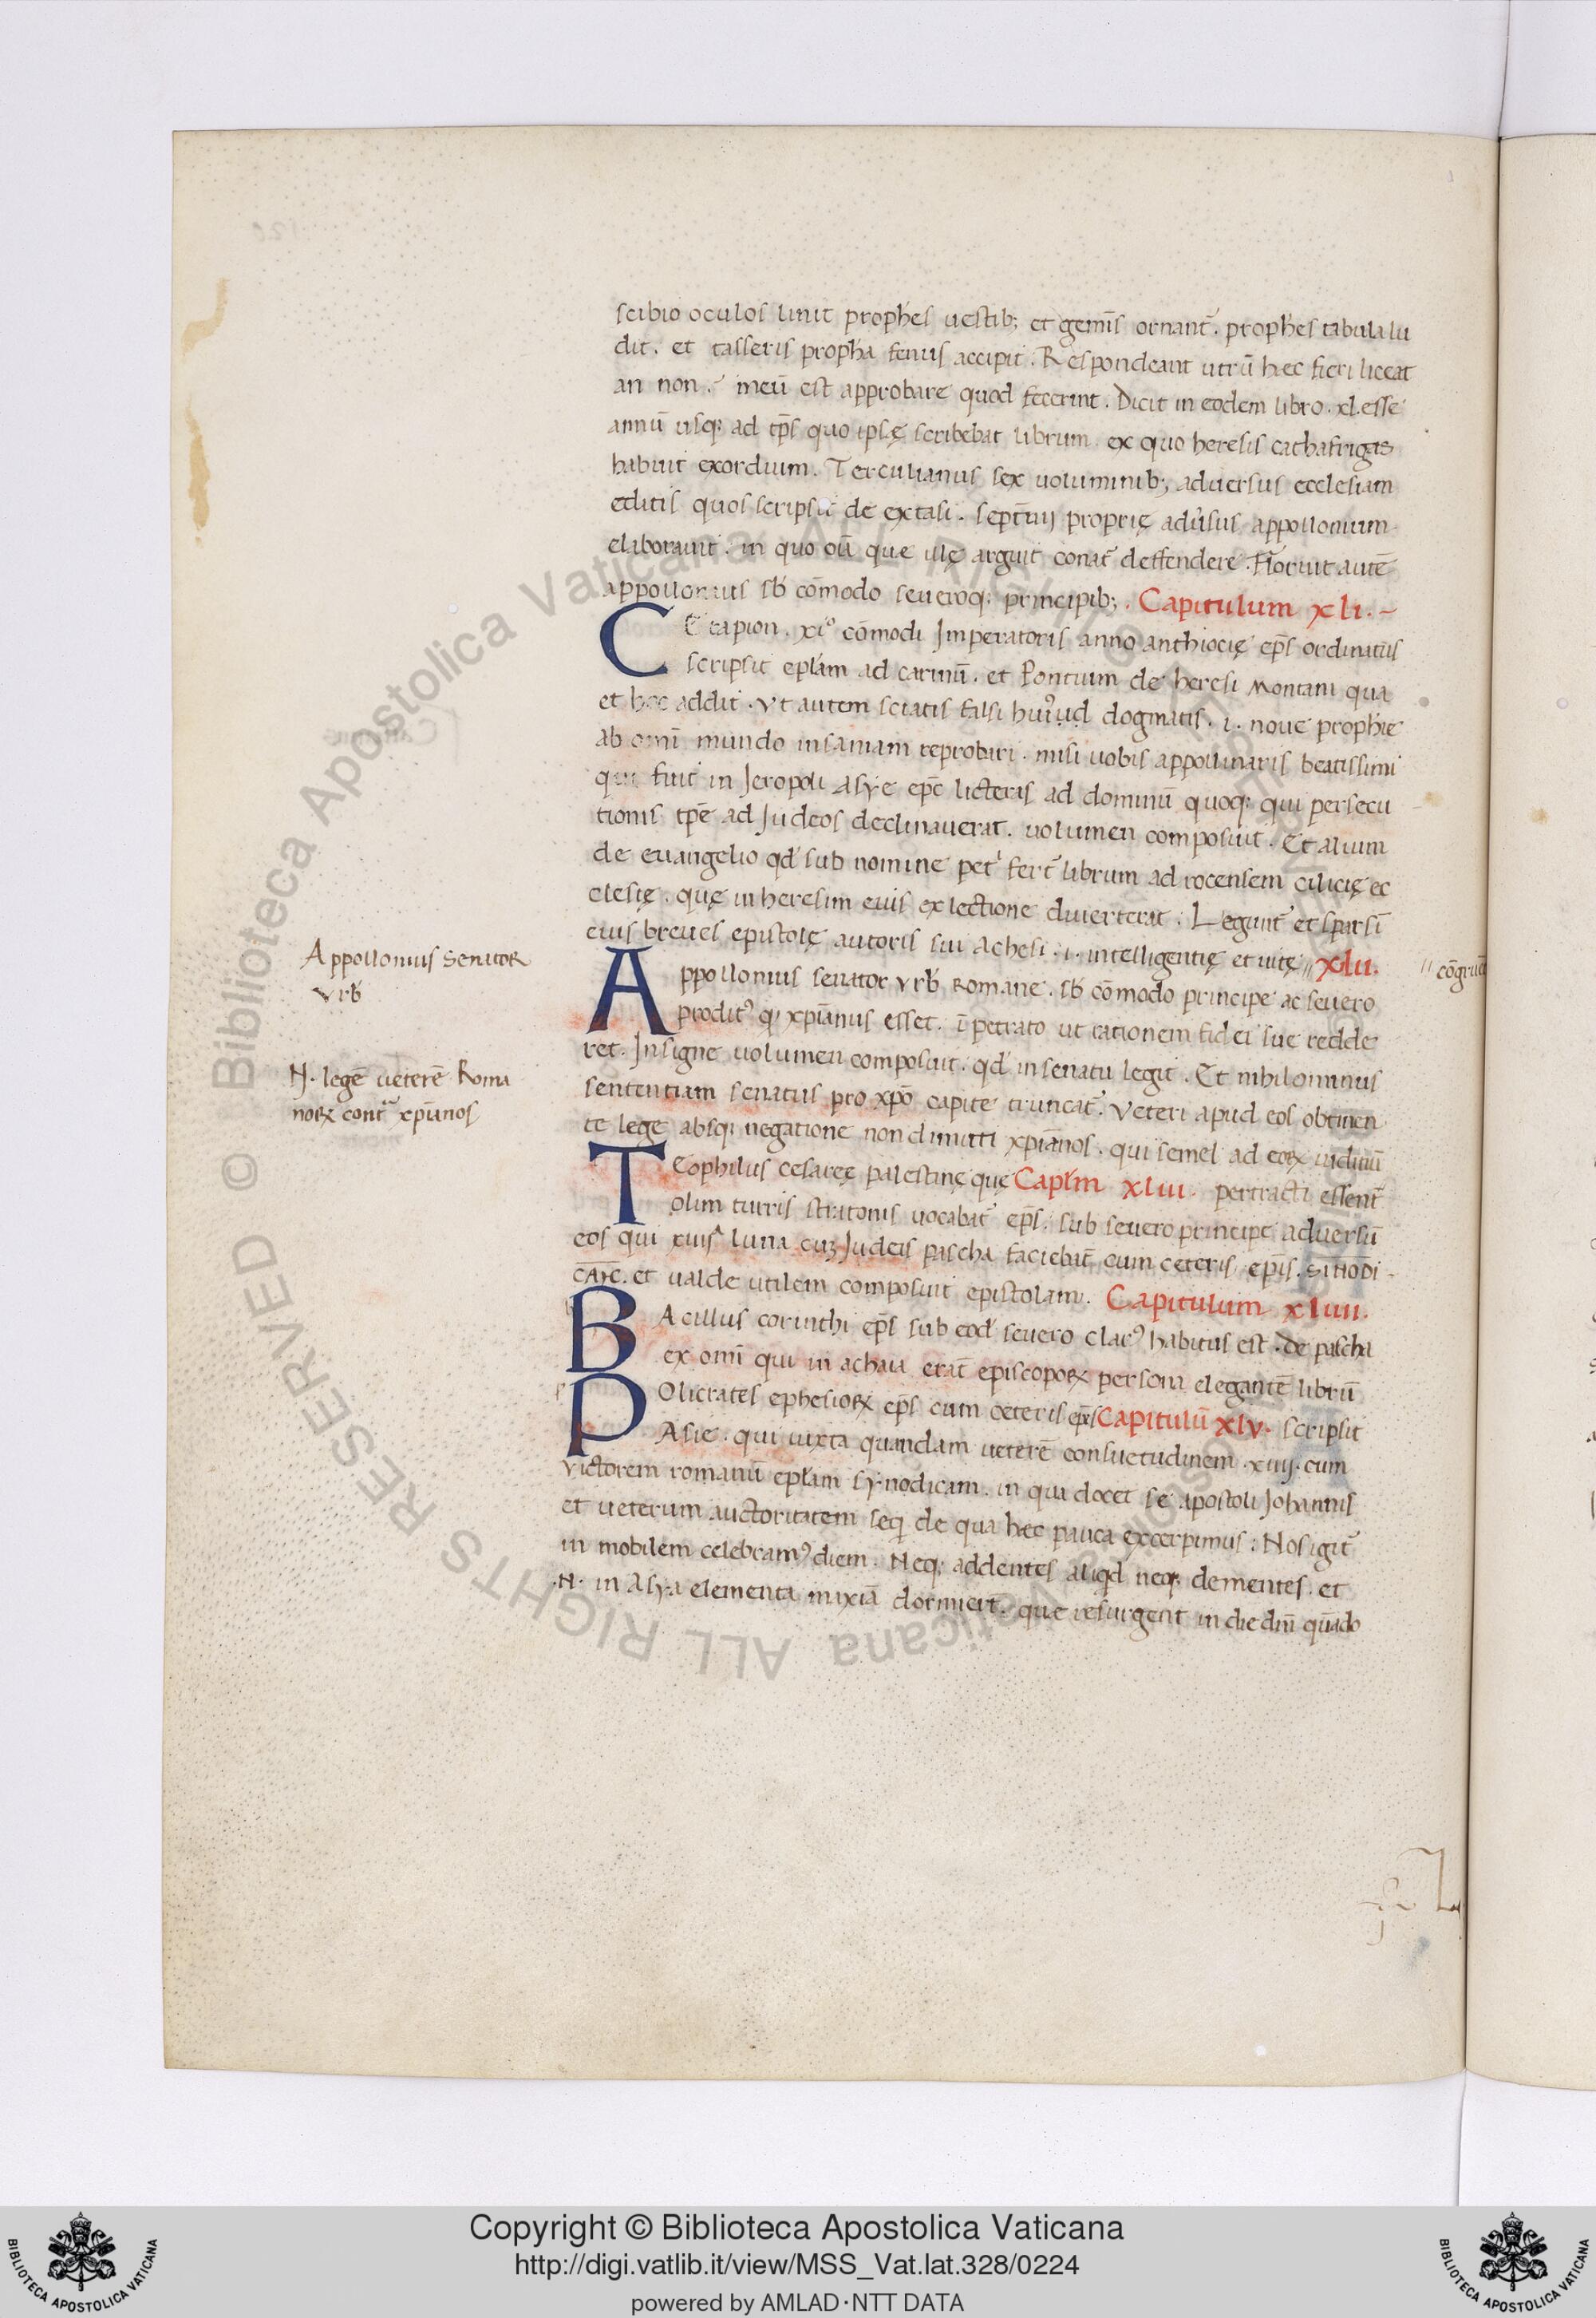 scibio oculos linit prophes uestib; et gemis ornant. prophes tabula lu
dit. et tasseris propha fenus accipit. Respondeant utrū hec fieri liceat
an non. meū est approbare quod fecerint. Dicit in eodem libro. xl. esse
annū usq; ad tp̄s quo ipsę scribebat librum ex quo heresis cathafrigas
habuit exordium. Terculianus sex uoluminib; aduersus ecclesiam
editis quos scripsit de extasi. septimū proprię adu̓sus appollonium
elaborauit. in quo oū que illę arguit conat̄ deffendere. Floruit autē
appollonius sb cōmodo seueroq; principib;. Capitulum xli.
CErapion. xi° cōmodi Imperatoris anno anthiocię ep̄s ordinatus
scripsit eplam ad carinū. et Pontium de heresi Montani qua
et hec addit. Vt autem sciatis falsi hui᾽ud dogmatis. i. noue prophie
ab omī mundo insaniam reprobari. misi uobis appollinaris beatissimi
qui fuit in Jeropoli Asye ep̄e licteris ad dominū quoq; qui persecu
tionis tp̄e ad Judeos declinauerat. uolumen composuit. Et alium
de euangelio qd sub nomine petⁱ fert̄ librum ad rocensem cilicię ec
clesię. quę in heresim eius ex lectione diuerterat. Legunt̄ et sparsī
eius breues epistolę autoris sui Achesi. i. intelligentię et uitę // xlii.
// cōgruē
Appollonius Senator
Vrb
Appollonius senator Vrb Romane. sb cōmodo principe ac seuero
prodit᾽ q xpianus esset. īpetrato ut rationem fidei sue redde
ret. Insigne uolumen composuit. qd in senatu legit. Et nihilominus
N. legē ueterē Roma
noꝝ contᵃ xpianos
sententiam senatus pro xpō capite truncat̄. Veteri apud eos obtinen
te lege absq; negatione non dimitti xpianos. qui semel ad eoꝝ iudiciū
TEophilus cesareę palestinę quę Caplm xliii. pertracti essent̄
olim turris stratonis uocabat̄ ep̄s. sub seuero principe aduersū
eos qui xiiiiᵃ luna cuꝫ Judeis pascha faciebat̄ cum ceteris ep̄is. sinodi
cāic. et ualde utilem composuit epistolam. Capitulum xliiii.
BAcillus corinthi ep̄s sub eod seuero clar᾽ habitus est. de pascha
ex omī qui in achaia erāt episcopoꝝ persona elegantē librū
POlicrates ephesioꝝ ep̄s cum ceteris ep̄is Capitulū xlv. scripsit
Asie. qui iuxta quandam ueterē consuetudinem. xiiij. cum
Victorem romanū eplam synodicam. in qua docet se apostoli Johannis
et ueterum auctoritatem seq̄ de qua hec pauca excerpimus: Nos igit̄
in mobilem celebram᾽ diem. Neq; addentes aliqd neq; dementes. et
.N. in Asya elementa mixiā dormiert̄. que resurgent in die dn̄i quādo
Copyright © Biblioteca Apostolica Vaticana
http://digi.vatlib.it/view/MSS_Vat.lat.328/0224
powered by AMLAD·NTT DATA